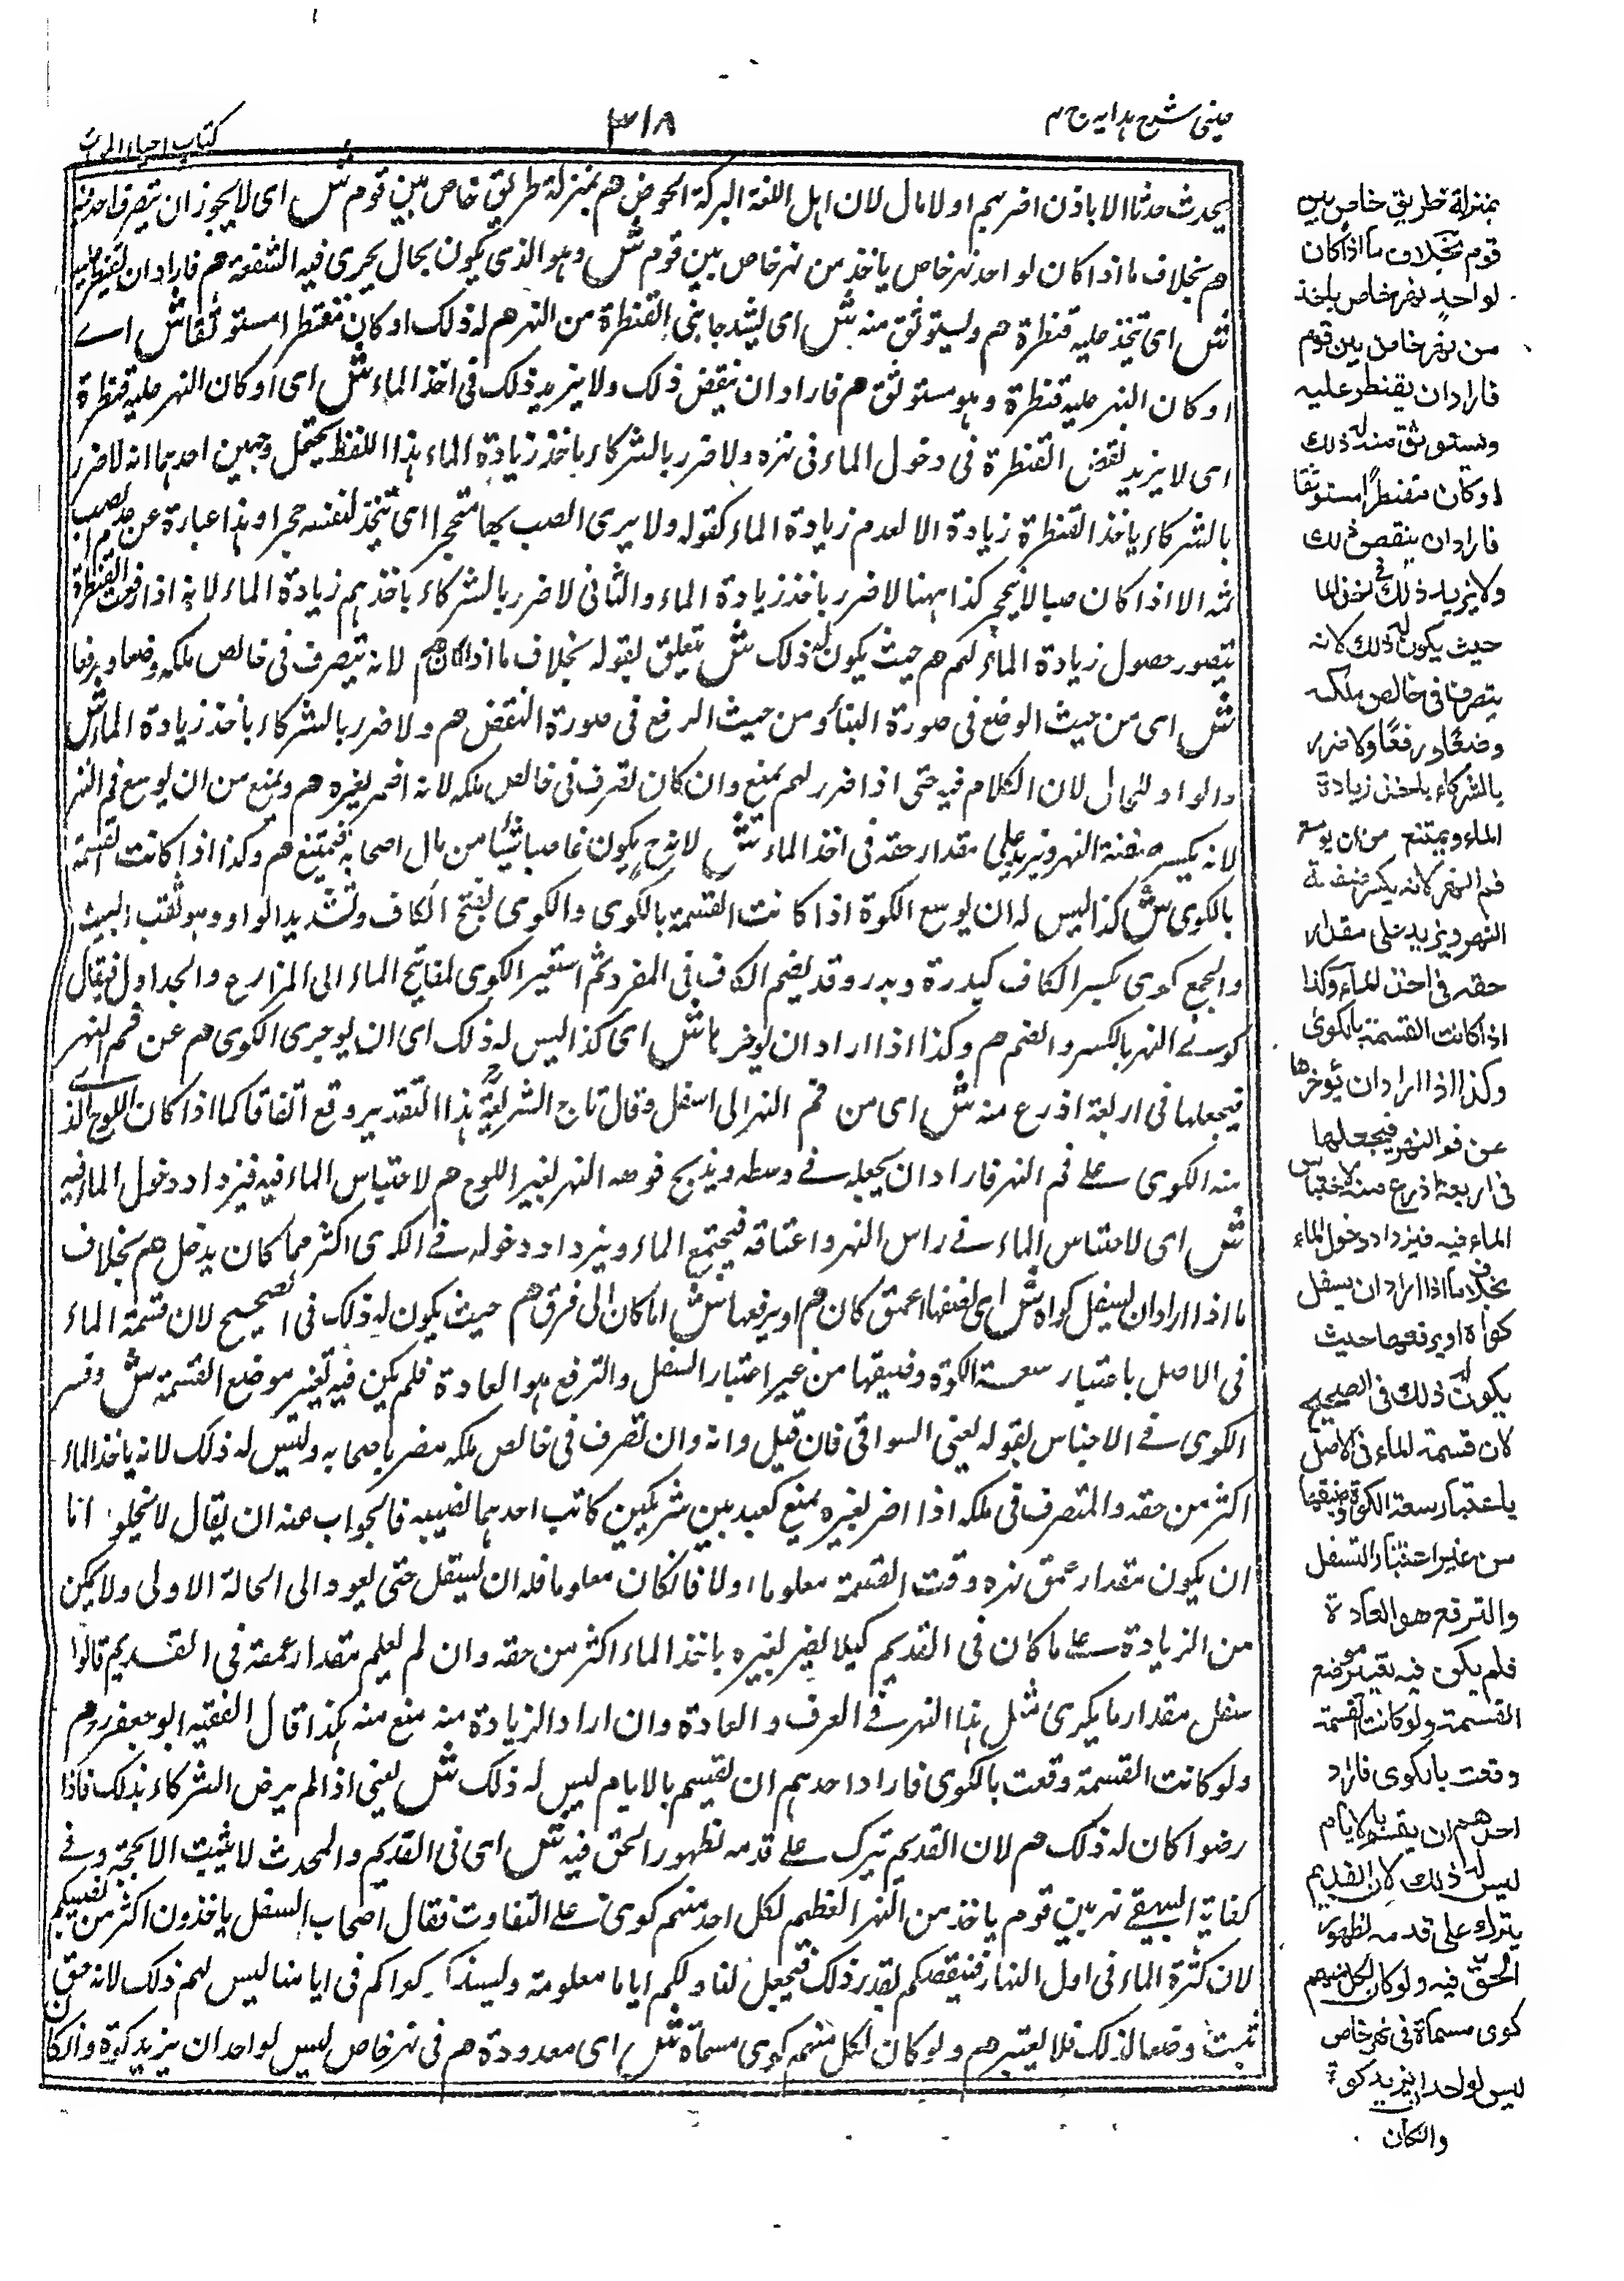 عینی شرح ہدایہ ج ۴
۳۱۸
کتاب احیاء الموات
یحدث حدثا الا باذن اضر بهم اولا مال لان اہل اللغة البرکة الحوض هم بمنزلة طریق خاص بین قوم ش ای لا یجوز ان یتصرف احد فیه
هم بخلاف ما اذا کان لواحد نهر خاص یاخذ من نهر خاص بین قوم ش وهو الذی یکون بحال یجری فیه الشفعة هم فاراد ان یقنطر علیه
ش ای یتخذ علیه قنطرة هم ویستوثق منه ش ای یشد جانبی القنطرة من النهر هم له ذلک او کان مقنطرا مستوثقا ش اے
او کان النهر علیه قنطرة وهو مستوثق هم فاراد ان ینقض ذلک ولا یزید ذلک فی اخذ الماء ش ای او کان النهر علیه قنطرة
ای لا یزید نقض القنطرة فی دخول الماء فی نهره ولا ضرر بالشرکاء باخذ زیادة الماء هذا اللفظ یحتمل وجهین احدهما انه لا ضرر
بالشرکاء یاخذ القنطرة زیادة الا لعدم زیادة الماء کقوله ولا یری الضب بها منجحرا ای یتخذ لنفسه جحرا وهذا عبارة عن عدم الضب
ثمه الا اذا کان ضبا لا ینجحر کذا ههنا لا ضرر باخذ زیادة الماء والثانی لا ضرر بالشرکاء باخذهم زیادة الماء لانه اذا رفعت القنطرة
یتصور حصول زیادة الماء لهم هم حیث یکون له ذلک ش یتعلق بقوله بخلاف ما اذا کان هم لانه یتصرف فی خالص ملکه وضعا ورفعا
ش ای من حیث الوضع فی صورة البناء ومن حیث الرفع فی صورة النقض هم ولا ضرر بالشرکاء باخذ زیادة الماء ش
والواو للحال لان الکلام فیه حتی اذا ضرر لهم یمنع وان کان تصرف فی خالص ملکه لانه اضر بغیره هم ویمنع من ان یوسع فم النهر
لانه یکسر ضفة النهر ویزید علی مقدار حقه فی اخذ الماء ش لانه ح یکون غاصبا شیئا من مال اصحابه فیمتنع هم وکذا اذا کانت القسمة
بالکوی ش کذا لیس له ان یوسع الکوة اذا کانت القسمة بالکوی والکوی بفتح الکاف وتشدید الواو وهو ثقب البیت
والجمع کوی بکسر الکاف کبدرة وبدر وقد یضم الکاف فی المفرد ثم استعیر الکوی لمفاتیح الماء الی المزارع والجداول فیقال
کوے النهر بالکسر والضم هم وکذا اذا اراد ان یوخرها ش ای کذا لیس له ذلک ای ان یوخر الکوی هم عن فم النهر
فیجعلها فی اربعة اذرع منه ش ای من فم النهر الی اسفل وقال تاج الشریعة ح هذا التقدیر وقع اتفاقا کما اذا کان اللوح الذے
منه الکوی علے فم النهر فاراد ان یجعله فے وسطه ویذبح فوهه النهر بغیر اللوح هم لاحتباس الماء فیه فیزداد دخول الماء فیه
ش ای لاحتباس الماء فے راس النهر واعتاقه فیجتمع الماء ویزداد دخوله فے الکوی اکثر مما کان یدخل هم بخلاف
ما اذا اراد ان یسفل کواه ش ای یضعها اعمق کان هم او یرفعها ش اما کان الی فرق هم حیث یکون له ذلک فی الصحیح لان قسمة الماء
فی الاصل باعتبار سعة الکوة وضیقها من غیر اعتبار السفل والترفع هو العادة فلم یکن فیه تغییر موضع القسمة ش وفسر
الکوی فے الاجناس بقوله یعنی السواقی فان قیل وانه وان تصرف فی خالص ملکه مضر باصحابه ولیس له ذلک لانه یاخذ الماء
اکثر من حقه والمتصرف فی ملکه اذا اضر بغیره یمنع کعبد بین شریکین کاتب احدهما نصیبه فالجواب عنه ان یقال لا یخلو اما
ان یکون مقدار عمق نهره وقت القسمة معلوما اولا فانکان معلوما فله ان یسفل حتی یعود الی الحالة الاولی ولا یمکن
من الزیادة علے ما کان فی القدیم کیلا یضر بغیره باخذ الماء اکثر من حقه وان لم یعلم مقدار عمقه فی القدیم قالوا
سفل مقدار ما یکری مثل هذا النهر فے العرف والعادة وان اراد الزیادة منه منع منه هکذا قال الفقیه ابو جعفر رح هم
ولو کانت القسمة وقعت بالکوی فاراد احدهم ان یقسم بالایام لیس له ذلک ش یعنی اذا لم یرض الشرکاء بذلک فاذا
رضوا کان له ذلک هم لان القدیم یترک علے قدمه لظهور الحق فیه ش ای فی القدیم والمحدث لا یثبت الا بحجة وفے
کفایة البیهقے نهر بین قوم یاخذ من النهر العظیم لکل احد منهم کوی علے التفاوت فقال اصحاب السفل یاخذون اکثر من نصیبکم
لان کثرة الماء فی اول النهار فننقصکم بقدر ذلک فیجعل لنا ولکم ایاما معلومة ولیسد کواکم فی ایامنا لیس لهم ذلک لانه حق
ثبت وضعا لذلک فلا یغیر هم ولو کان لکل منهم کوی مسماة ش ای معدودة هم فی نهر خاص لیس لواحد ان یزید کوة والکان
بمنزلة طریق خاص بین
قوم بخلاف ما اذا کان
لواحد نهر خاص یاخذ
من نهر خاص بین قوم
فاراد ان یقنطر علیه
ویستوثق منه له ذلک
او کان مقنطرا مستوثقا
فاراد ان ینقض ذلک
ولا یزید ذلک فی اخذ الما
حیث یکون له ذلک لانه
یتصرف فی خالص ملکه
وضعًا ورفعًا ولا ضرر
بالشرکاء باخذ زیادة
الماء ویمتنع من ان یوسع
فم النهر لانه یکسر ضفة
النهر ویزید علی مقدار
حقه فی اخذ الماء وکذا
اذا کانت القسمة بالکوی
وکذا اذا اراد ان یؤخرها
عن فم النهر فیجعلها
فی اربعة اذرع منه لاحتباس
الماء فیه فیزداد دخول الماء
بخلاف ما اذا اراد ان یسفل
کواه او یرفعها حیث
یکون له ذلک فی الصحیح
لان قسمة الماء فی الاصل
باعتبار سعة الکوة وضیقها
من غیر اعتبار التسفل
والترفع هو العادة
فلم یکن فیه تغییر موضع
القسمة ولو کانت القسمة
وقعت بالکوی فاراد
احدهم ان یقسم بالایام
لیس له ذلک لان القدیم
یترک علی قدمه لظهور
الحق فیه ولو کان لکل منهم
کوی مسماة فی نهر خاص
لیس لواحد ان یزید کوة
والکان